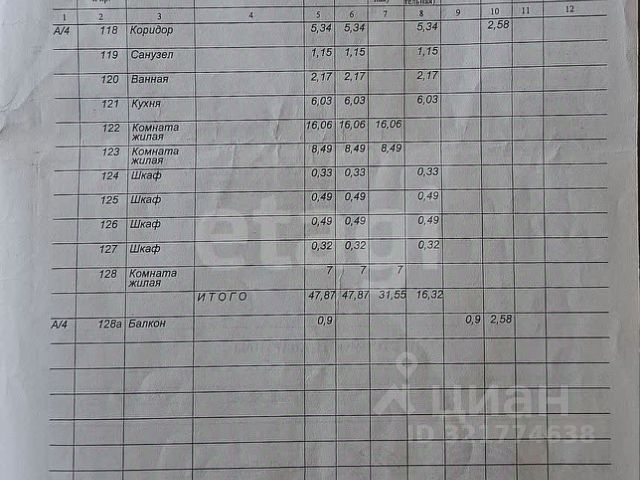 1 2 3 4 5 6 7 8 9 10 11 12
А/4 118 Коридор 5,34 5,34 5,34 2,58
119 Санузел 1,15 1,15 1,15
120 Ванная 2,17 2,17 2,17
121 Кухня 6,03 6,03 6,03
122 Комната 16,06 16,06 16,06
жилая
123 Комната 8,49 8,49 8,49
жилая
124 Шкаф 0,33 0,33 0,33
125 Шкаф 0,49 0,49 0,49
126 Шкаф 0,49 0,49 0,49
127 Шкаф 0,32 0,32 0,32
etagi
128 Комната 7 7 7
жилая
ИТОГО 47,87 47,87 31,55 16,32
А/4 128а Балкон 0,9 0,9 2,58
циан
ID 321774638